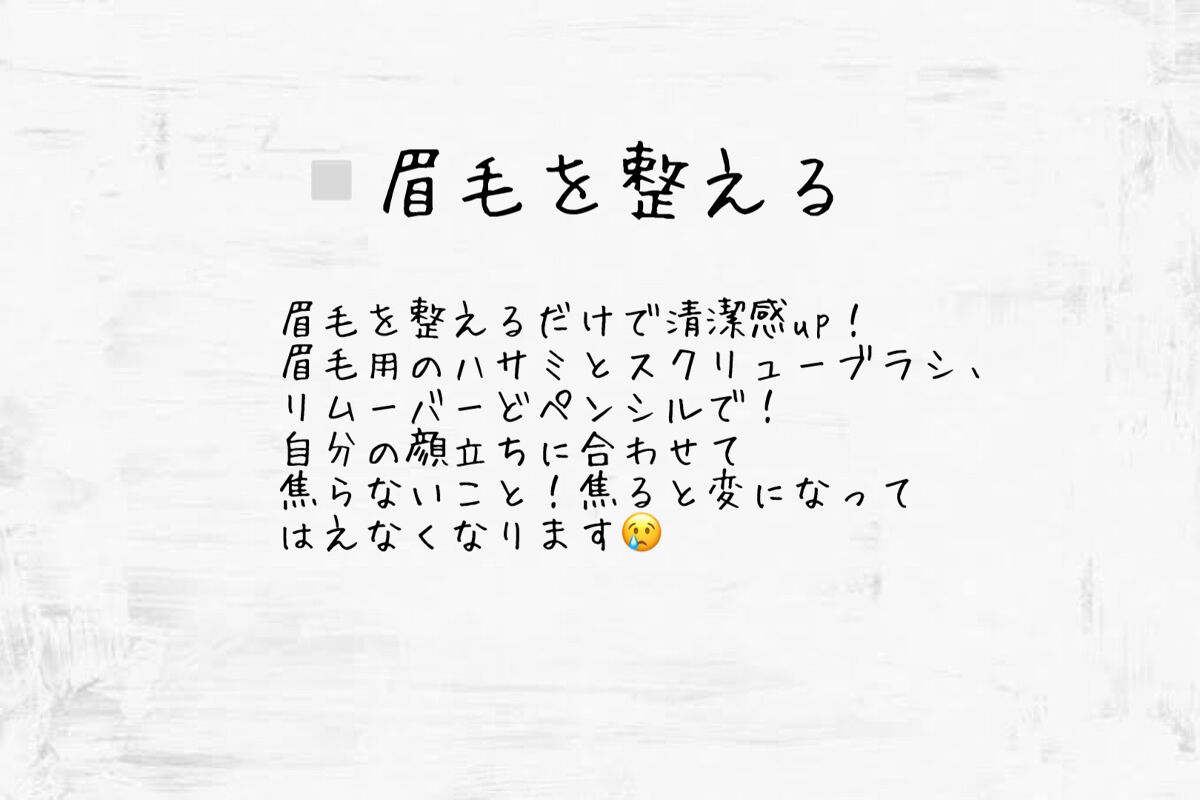 眉毛を整える
眉毛を整えるだけで清潔感up！
眉毛用のハサミとスクリューブラシ、
リムーバーどペンシルで！
自分の顔立ちに合わせて
焦らないこと！焦ると変になって
はえなくなります😢